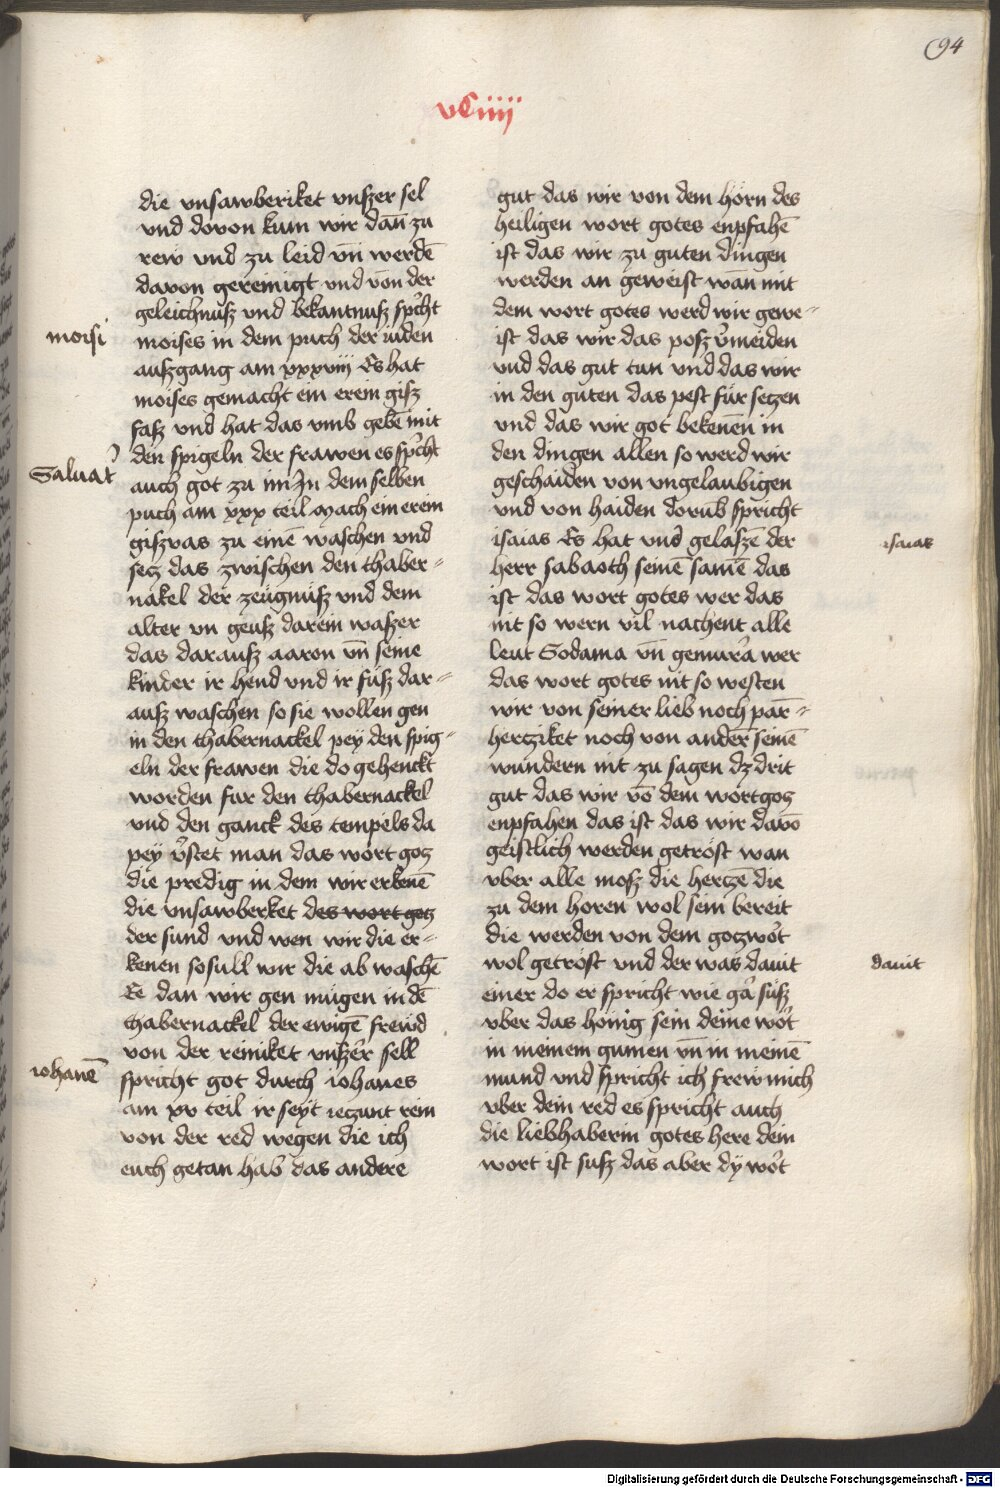 94
vCiiii
die vnsawberiket vnszer sel
vnd dovon kum wir dan̄ zu
rew vnd zu leid vn̄ werdē
davon gereinigt vnd von der
geleichnusz vnd bekantnusz spꝛicht
moisi
moises in dem puch der iuden
auszgang am xxxviij Es hat
moises gemacht ein erein gisz
fasz vnd hat das vmb gebē mit
den spigeln der frawen es spꝛicht
Saluat᷒
auch got zu im Jn dem selben
puch am xxx teil Mach ein erein
giszvas zu einē waschen vnd
secz das zwischen den thaber⸗
nakel der zeugnusz vnd dem
alter vn geusz darein waszer
das darausz aaron vn̄ seine
kinder ir hend vnd ir fusz dar⸗
ausz waschen so sie wollen gen
in den thabernackel pey den spig⸗
eln der frawen die do gehenckt
worden fur den thabernackel
vnd den ganck des tempels da
pey v̓stet man das wort gocz
die predig in dem wir erkenē
die vnsawberket des wort gocz
der sund vnd wen wir die er⸗
kenen so sull wir die ab waschē
Ee dan wir gen mugen in dē
thabernackel der ewigē frewd
von der reiniket vnszer sell
iohanē
spricht got durch iohanes
am xv teil ir seyt ieczunt rein
von der red wegen die ich
euch getan hab das andere
gut das wir von dem horn des
heiligen wort gotes enpfahē
ist das wir zu guten dingen
werden an geweist wan̄ mit
dem wort gotes werd wir gewe⸗
ist das wir das posz v̓meiden
vnd das gut tun vnd das wir
in den guten das pest fur seczen
vnd das wir got bekenēn in
den dingen allen so werd wir
geschaiden von vngelaubigen
vnd von haiden dorūb spricht
isaias Es hat vns̓ gelaszē der
isaias
herr sabaoth seinē samē das
ist das wort gotes wer das
nit so wern vil nachent alle
leut Sodama vn̄ gemur̓a wer
das wort gotes nit so westen
wir von seiner lieb noch par̄⸗
hercziket noch von ander̄ seinē
wundern nit zu sagen dz drit
gut das wir vō dem wort gocz
enpfahen das ist das wir davō
geistlich werden getrost wan
vber alle mosz die herczē die
zu dem horen wol sein bereit
die werden von dem goczwo̓t
wol getrost vnd der was dauit
dauit
einer do er spricht wie ga̓ susz
vber das honig sein deine wo̓t
in meinem gumen vn̄ in meinē
mund vnd spricht ich frew mich
vber dein red es spricht auch
die liebhaberin gotes here dein
wort ist susz das aber dy wo̓t
Digitalisierung gefördert durch die Deutsche Forschungsgemeinschaft - DFG